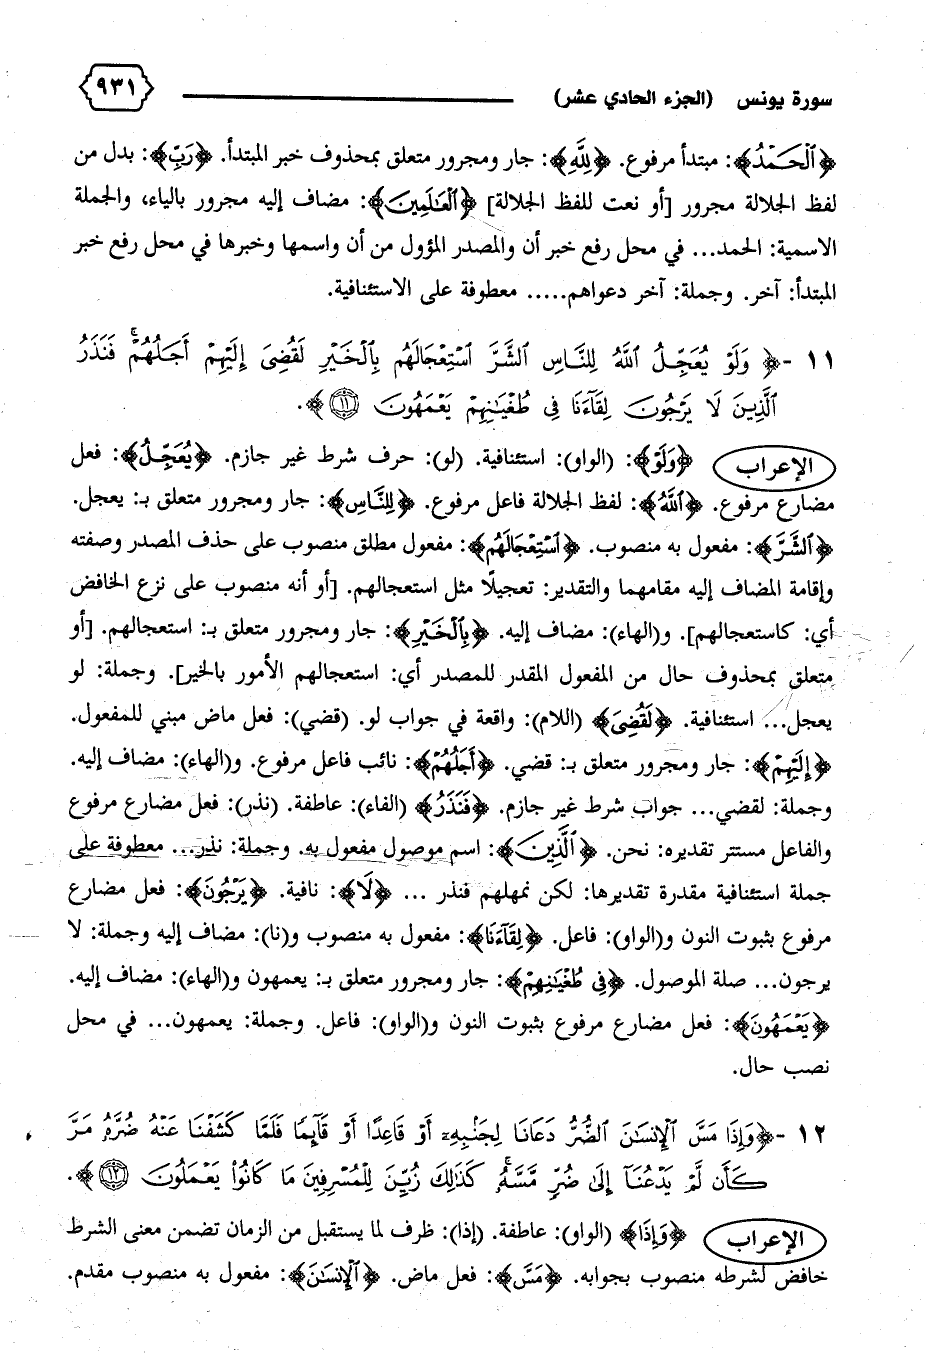 سورة يونس (الجزء الحادي عشر) ٩٣١
﴿ٱلْحَمْدُ﴾: مبتدأ مرفوع. ﴿لِلَّهِ﴾: جار ومجرور متعلق بمحذوف خبر المبتدأ. ﴿رَبِّ﴾: بدل من
لفظ الجلالة مجرور [أو نعت للفظ الجلالة] ﴿ٱلْعَـٰلَمِينَ﴾: مضاف إليه مجرور بالياء، والجملة
الاسمية: الحمد... في محل رفع خبر أن والمصدر المؤول من أن واسمها وخبرها في محل رفع خبر
المبتدأ: آخر. وجملة: آخر دعواهم..... معطوفة على الاستئنافية.
١١ - ﴿ وَلَوْ يُعَجِّلُ ٱللَّهُ لِلنَّاسِ ٱلشَّرَّ ٱسْتِعْجَالَهُم بِٱلْخَيْرِ لَقُضِىَ إِلَيْهِمْ أَجَلُهُمْ ۖ فَنَذَرُ
ٱلَّذِينَ لَا يَرْجُونَ لِقَآءَنَا فِى طُغْيَـٰنِهِمْ يَعْمَهُونَ ۝١١ ﴾.
الإعراب ﴿وَلَوْ﴾: (الواو): استئنافية. (لو): حرف شرط غير جازم. ﴿يُعَجِّلُ﴾: فعل
مضارع مرفوع. ﴿ٱللَّهُ﴾: لفظ الجلالة فاعل مرفوع. ﴿لِلنَّاسِ﴾: جار ومجرور متعلق بـ: يعجل.
﴿ٱلشَّرَّ﴾: مفعول به منصوب. ﴿ٱسْتِعْجَالَهُم﴾: مفعول مطلق منصوب على حذف المصدر وصفته
وإقامة المضاف إليه مقامهما والتقدير: تعجيلًا مثل استعجالهم. [أو أنه منصوب على نزع الخافض
أي: كاستعجالهم]. و(الهاء): مضاف إليه. ﴿بِٱلْخَيْرِ﴾: جار ومجرور متعلق بـ: استعجالهم. [أو
متعلق بمحذوف حال من المفعول المقدر للمصدر أي: استعجالهم الأمور بالخير]. وجملة: لو
يعجل... استئنافية. ﴿لَقُضِىَ﴾ (اللام): واقعة في جواب لو. (قضي): فعل ماض مبني للمفعول.
﴿إِلَيْهِمْ﴾: جار ومجرور متعلق بـ: قضي. ﴿أَجَلُهُمْ﴾: نائب فاعل مرفوع. و(الهاء): مضاف إليه.
وجملة: لقضي... جواب شرط غير جازم. ﴿فَنَذَرُ﴾ (الفاء): عاطفة. (نذر): فعل مضارع مرفوع
والفاعل مستتر تقديره: نحن. ﴿ٱلَّذِينَ﴾: اسم موصول مفعول به. وجملة: نذر... معطوفة على
جملة استئنافية مقدرة تقديرها: لكن نمهلهم فنذر ... ﴿لَا﴾: نافية. ﴿يَرْجُونَ﴾: فعل مضارع
مرفوع بثبوت النون و(الواو): فاعل. ﴿لِقَآءَنَا﴾: مفعول به منصوب و(نا): مضاف إليه وجملة: لا
يرجون... صلة الموصول. ﴿فِى طُغْيَـٰنِهِمْ﴾: جار ومجرور متعلق بـ: يعمهون و(الهاء): مضاف إليه.
﴿يَعْمَهُونَ﴾: فعل مضارع مرفوع بثبوت النون و(الواو): فاعل. وجملة: يعمهون... في محل
نصب حال.
١٢ - ﴿وَإِذَا مَسَّ ٱلْإِنسَـٰنَ ٱلضُّرُّ دَعَانَا لِجَنۢبِهِۦٓ أَوْ قَاعِدًا أَوْ قَآئِمًا فَلَمَّا كَشَفْنَا عَنْهُ ضُرَّهُۥ مَرَّ
كَأَن لَّمْ يَدْعُنَآ إِلَىٰ ضُرٍّ مَّسَّهُۥ ۚ كَذَٰلِكَ زُيِّنَ لِلْمُسْرِفِينَ مَا كَانُوا۟ يَعْمَلُونَ ۝١٢ ﴾.
الإعراب ﴿وَإِذَا﴾ (الواو): عاطفة. (إذا): ظرف لما يستقبل من الزمان تضمن معنى الشرط
خافض لشرطه منصوب بجوابه. ﴿مَسَّ﴾: فعل ماض. ﴿ٱلْإِنسَـٰنَ﴾: مفعول به منصوب مقدم.